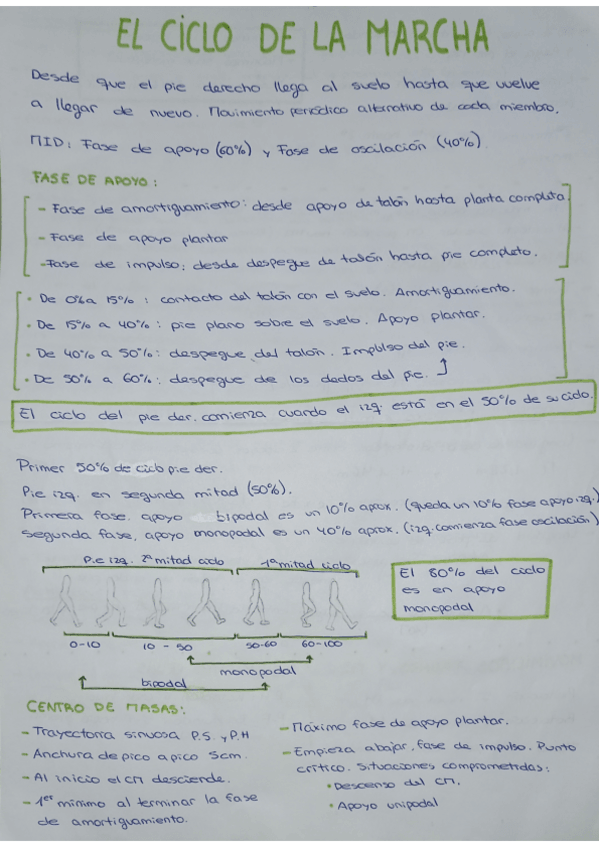 EL CICLO DE LA MARCHA
Desde que el pie derecho llega al suelo hasta que vuelve
a llegar de nuevo. Movimiento periódico alternativo de cada miembro.
MID: Fase de apoyo (60%) y Fase de oscilación (40%)
FASE DE APOYO:
- Fase de amortiguamiento: desde apoyo de talón hasta planta completa.
- Fase de apoyo plantar
- Fase de impulso: desde despegue de talón hasta pie completo.
• De 0% a 15%: contacto del talón con el suelo. Amortiguamiento.
• De 15% a 40%: pie plano sobre el suelo. Apoyo plantar.
• De 40% a 50%: despegue del talón. Implulso del pie.
• De 50% a 60%: despegue de los dedos del pie.
El ciclo del pie der. comienza cuando el izq. está en el 50% de su ciclo.
Primer 50% de ciclo pie der.
Pie izq. en segunda mitad (50%).
Primera fase, apoyo bipodal es un 10% aprox. (queda un 10% fase apoyo izq.)
Segunda fase, apoyo monopodal es un 40% aprox. (izq. comienza fase oscilación)
Pie izq. 2ª mitad ciclo 1ª mitad ciclo
El 80% del ciclo
es en apoyo
monopodal
0-10 10-50 50-60 60-100
monopodal
bipodal
CENTRO DE MASAS:
- Trayectoria sinuosa P.S. y P.H
- Anchura de pico a pico 5cm.
- Al inicio el CM desciende.
- 1er mínimo al terminar la fase
de amortiguamiento.
- Máximo fase de apoyo plantar.
- Empieza a bajar, fase de impulso. Punto
crítico. Situaciones comprometidas:
• Descenso del CM.
• Apoyo unipodal